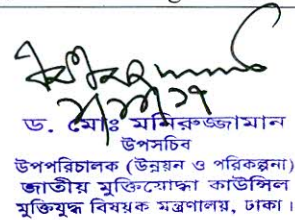 ড. মোঃ মনিরুজ্জামান
উপসচিব
উপপরিচালক (উন্নয়ন ও পরিকল্পনা)
জাতীয় মুক্তিযোদ্ধা কাউন্সিল
মুক্তিযুদ্ধ বিষয়ক মন্ত্রণালয়, ঢাকা।